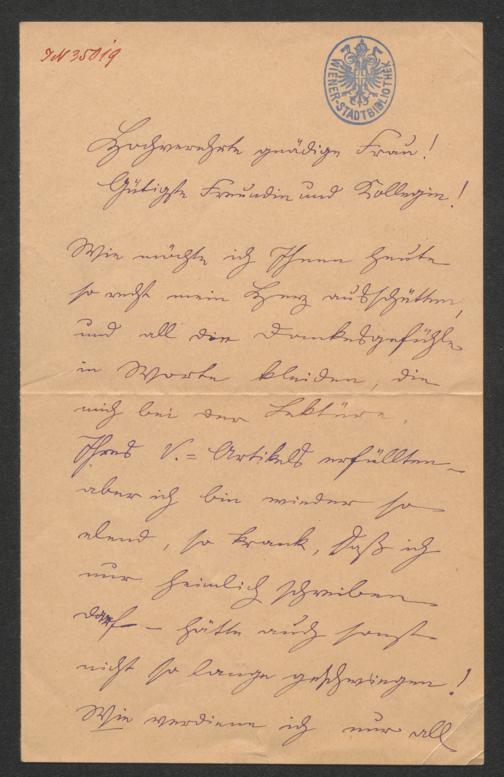 IN 35019
WIENER-STADTBIBLIOTHEK
Hochverehrte gnädige Frau!
Gütigste Freundin und Kollegin!
Wie möchte ich Ihnen heute
so recht mein Herz ausschütten,
und all die Dankesgefühle
in Worte kleiden, die
mich bei der Lektüre
Ihres V.=Artikels erfüllten –
aber ich bin wieder so
elend, so krank, daß ich
nur heimlich schreiben
darf – hätte auch sonst
nicht so lange geschwiegen!
Wie verdiene ich nur all